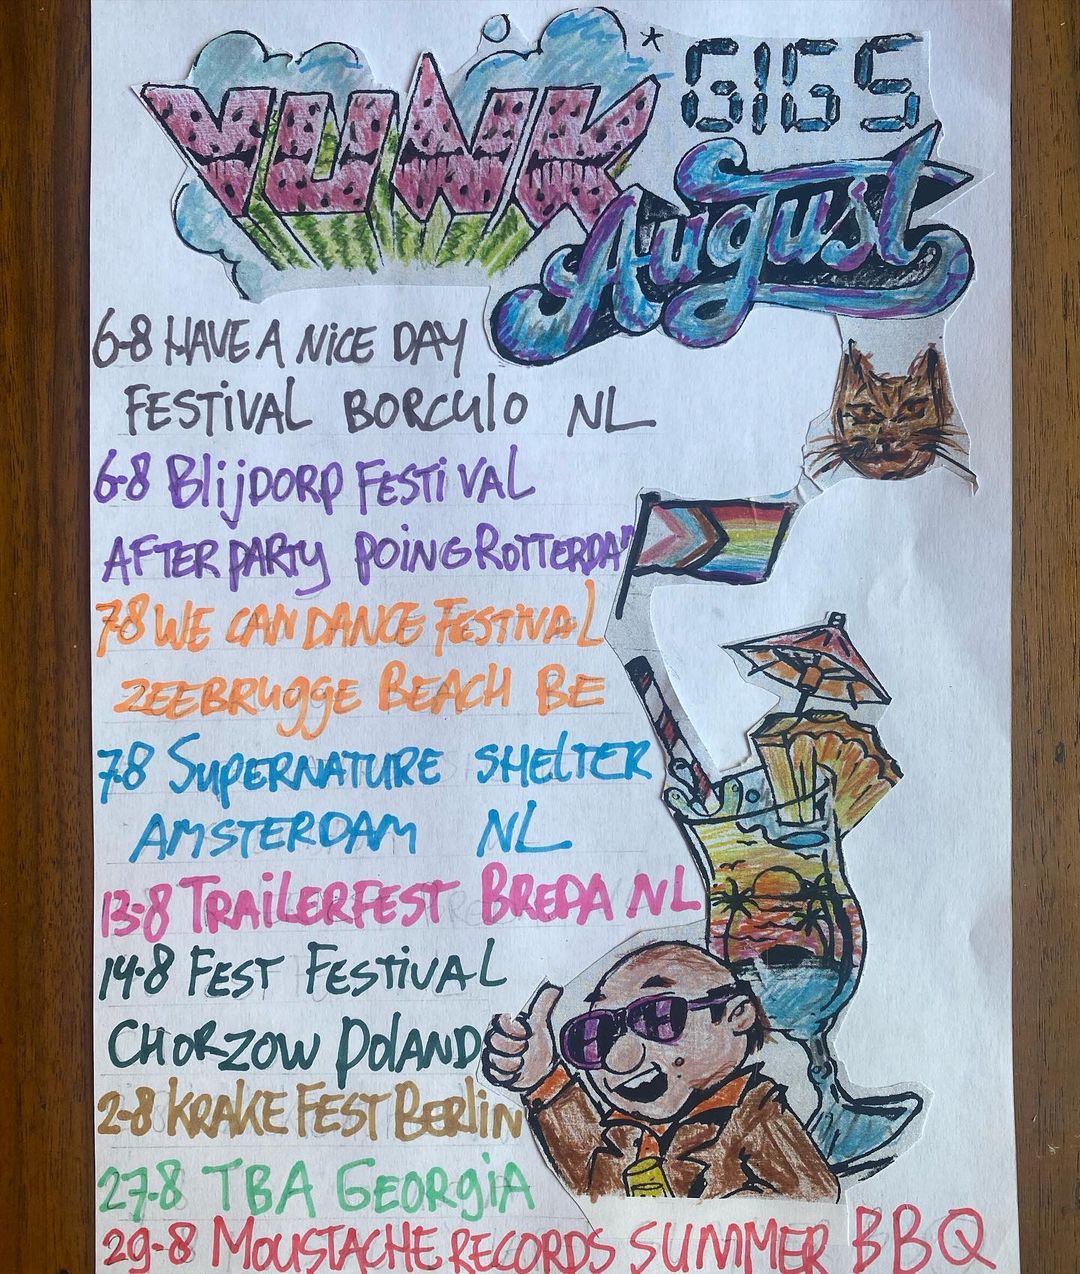 YUNK
GIGS
August
6-8 HAVE A NICE DAY
FESTIVAL BORCULO NL
6-8 BLIJDORP FESTIVAL
AFTERPARTY POING ROTTERDAM
7-8 WE CAN DANCE FESTIVAL
ZEEBRUGGE BEACH BE
7-8 SUPERNATURE SHELTER
AMSTERDAM NL
13-8 TRAILERFEST BREDA NL
14-8 FEST FESTIVAL
CHORZOW POLAND
2-8 KRAKE FEST BERLIN
27-8 TBA GEORGIA
29-8 MOUSTACHE RECORDS SUMMER BBQ